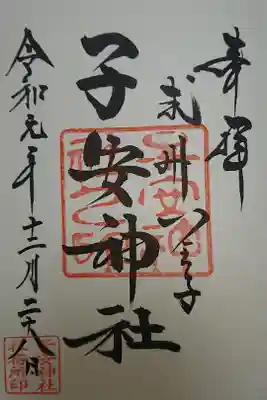 奉拝
武州八王子
子安神社
令和元年十二月二十八日